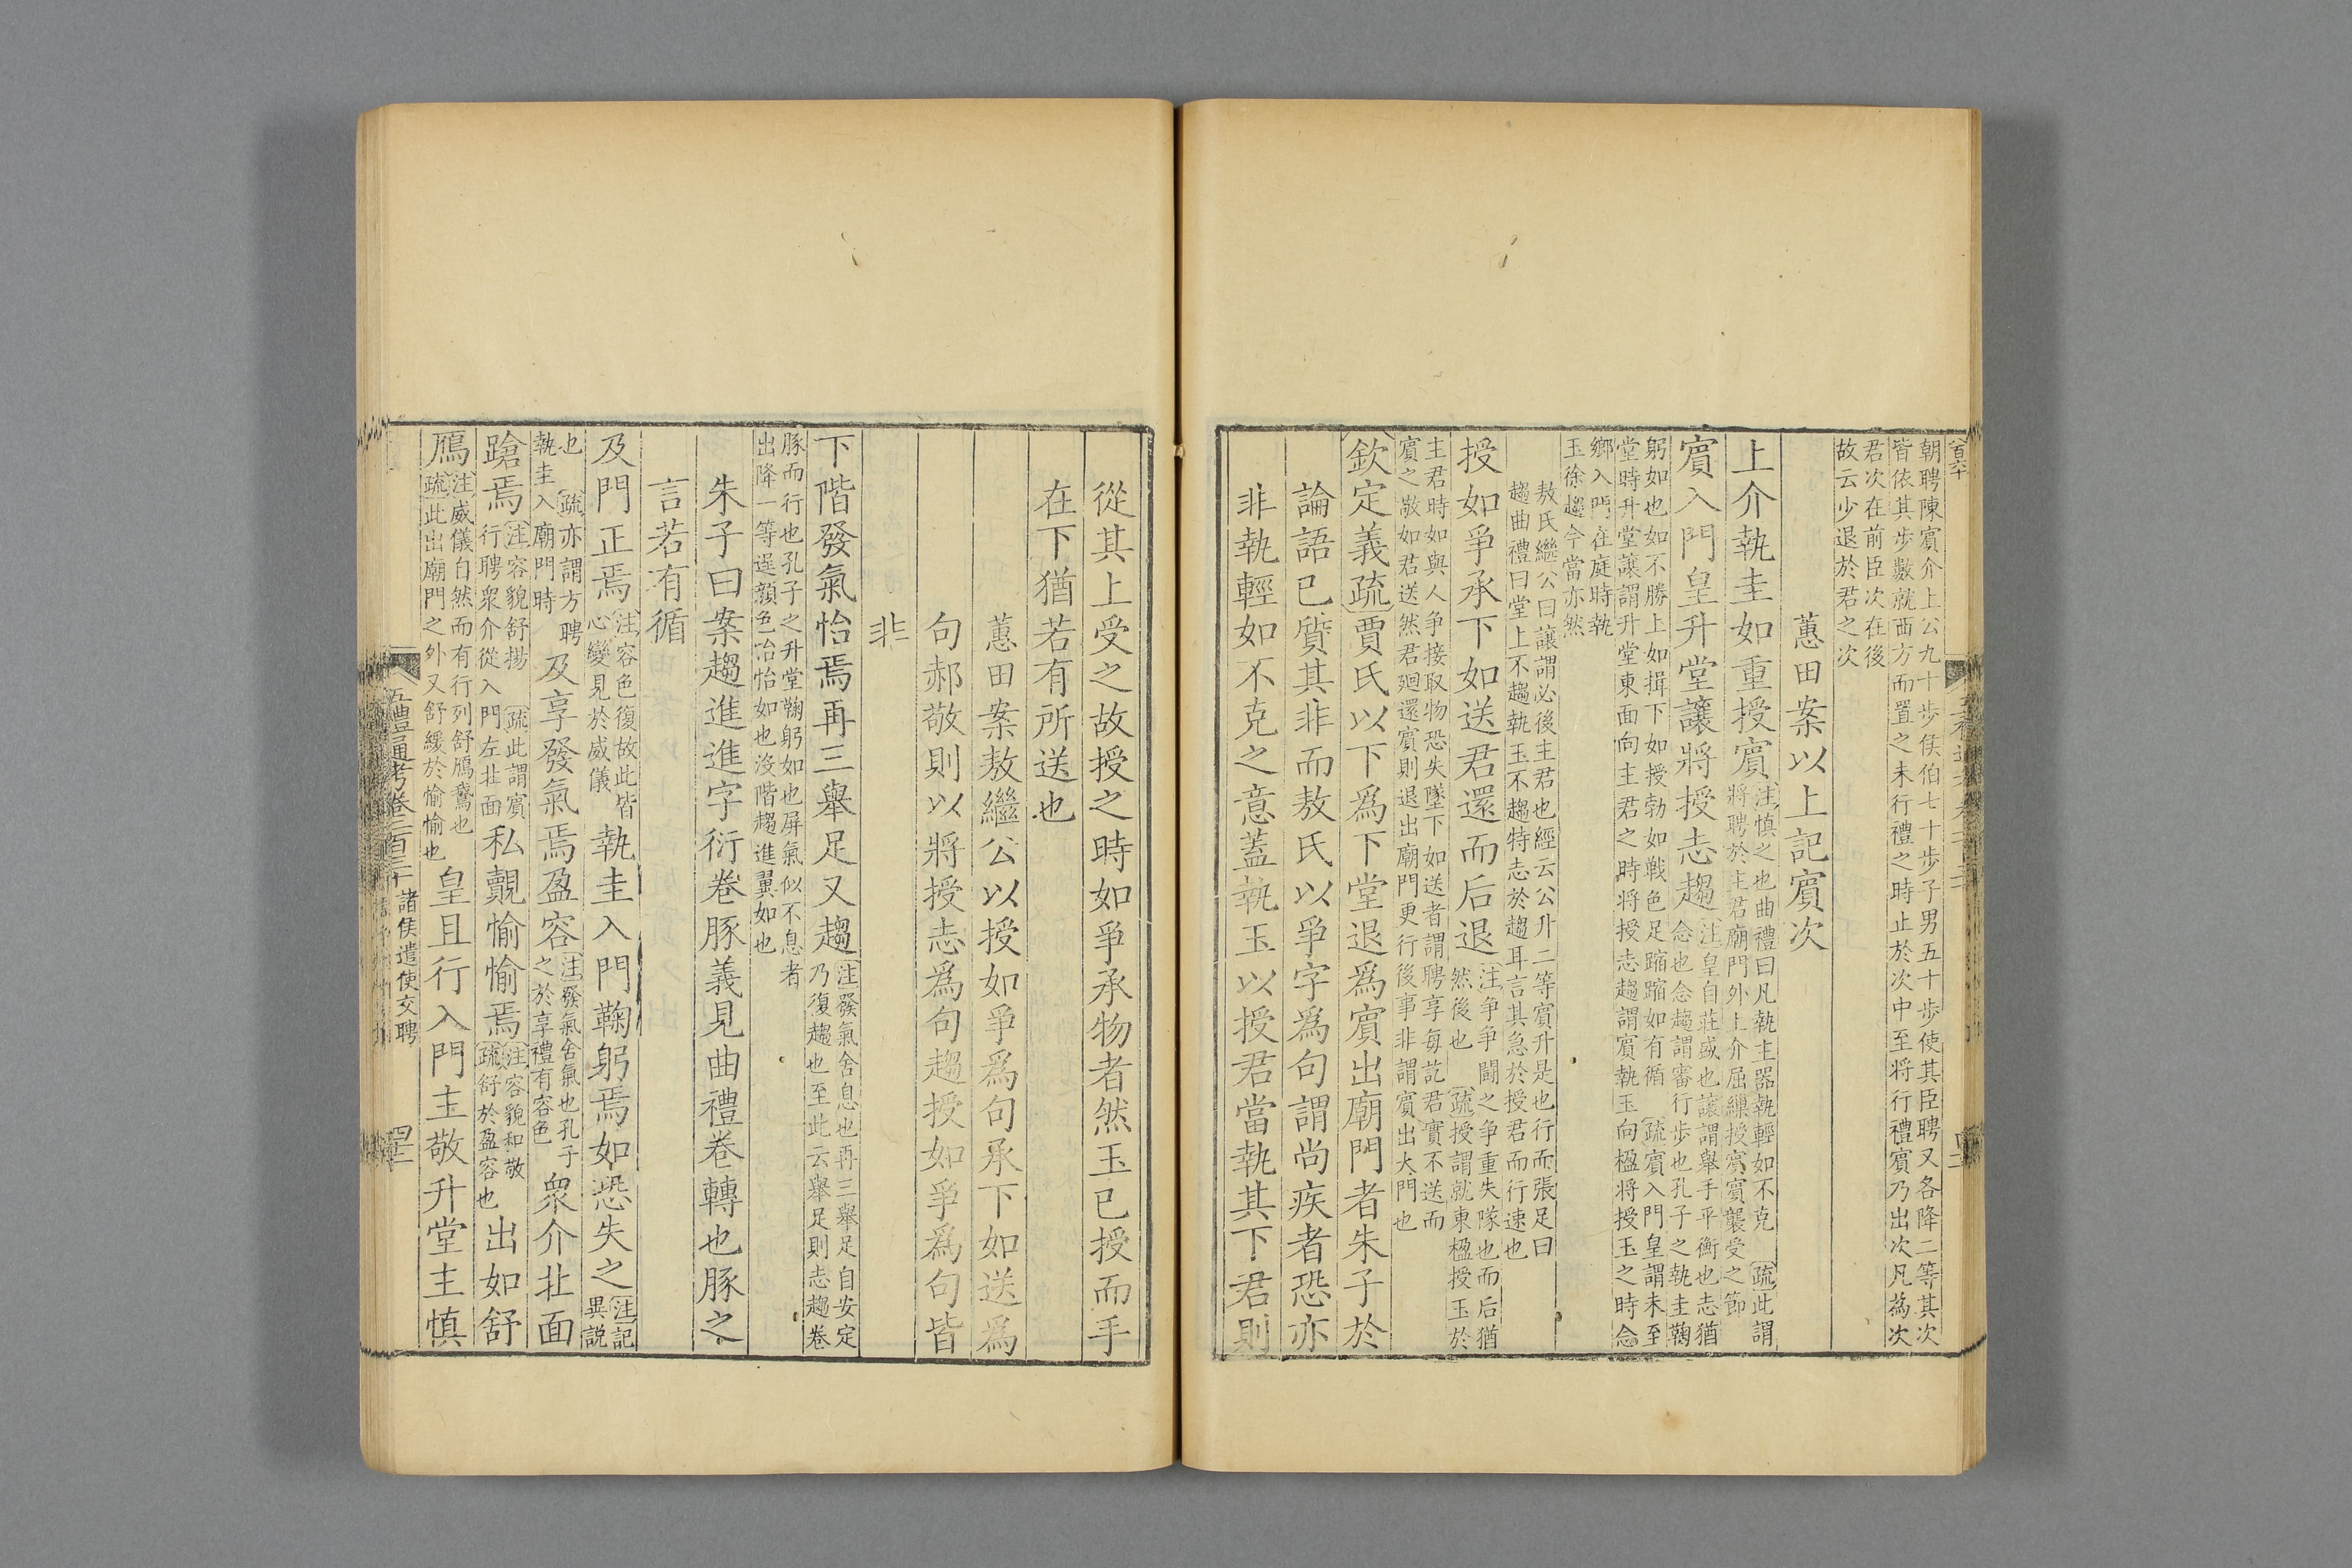 朝聘陳賓介上公九十步侯伯七十步子男五十步使其臣聘又各降二等其次
皆依其步數就西方而置之未行禮之時止於次中至將行禮賓乃出次凡為次
君次在前臣次在後
故云少退於君之次
蕙田案以上記賓次
上介執圭如重授賓注慎之也曲禮曰凡執主器執輕如不克 疏此謂
將聘於主君廟門外上介屈繅授賓賓襲受之節
賓入門皇升堂讓將授志趨注皇自莊盛也讓謂舉手平衡也志猶
念也念趨謂審行步也孔子之執圭鞠
躬如也如不勝上如揖下如授勃如戰色足蹜蹜如有循 疏賓入門皇謂未至
堂時升堂讓謂升堂東面向主君之時將授志趨謂賓執玉向楹將授玉之時念
鄉入門在庭時執
玉徐趨今當亦然
敖氏繼公曰讓謂必後主君也經云公升二等賓升是也行而張足曰
趨曲禮曰堂上不趨執玉不趨特志於趨耳言其急於授君而行速也
授如爭承下如送君還而后退注爭爭鬭之爭重失隊也而后猶
然後也 疏授謂就東楹授玉於
主君時如與人爭接取物恐失墜下如送者謂聘享每訖君實不送而
賓之敬如君送然君廻還賓則退出廟門更行後事非謂賓出大門也
欽定義疏賈氏以下為下堂退為賓出廟門者朱子於
論語已質其非而敖氏以爭字為句謂尚疾者恐亦
非執輕如不克之意蓋執玉以授君當執其下君則
從其上受之故授之時如爭承物者然玉已授而手
在下猶若有所送也
蕙田案敖繼公以授如爭為句承下如送為
句郝敬則以將授志為句趨授如爭為句皆
非
下階發氣怡焉再三舉足又趨注發氣舍息也再三舉足自安定
乃復趨也至此云舉足則志趨卷
豚而行也孔子之升堂鞠躬如也屏氣似不息者
出降一等逞顏色怡怡如也沒階趨進翼如也
朱子曰案趨進進字衍卷豚義見曲禮卷轉也豚之
言若有循
及門正焉注容色復故此皆
心變見於威儀執圭入門鞠躬焉如恐失之注記
異說
也 疏亦謂方聘
執圭入廟門時及享發氣焉盈容注發氣舍氣也孔子
之於享禮有容色衆介北面
蹌焉注容貌舒揚 疏此謂賓
行聘衆介從入門左北面私覿愉愉焉注容貌和敬
疏舒於盈容也出如舒
鴈注威儀自然而有行列舒鴈鵞也
疏此出廟門之外又舒緩於愉愉也皇且行入門主敬升堂主慎
五禮通考卷二百三十 諸侯遣使交聘 四十二